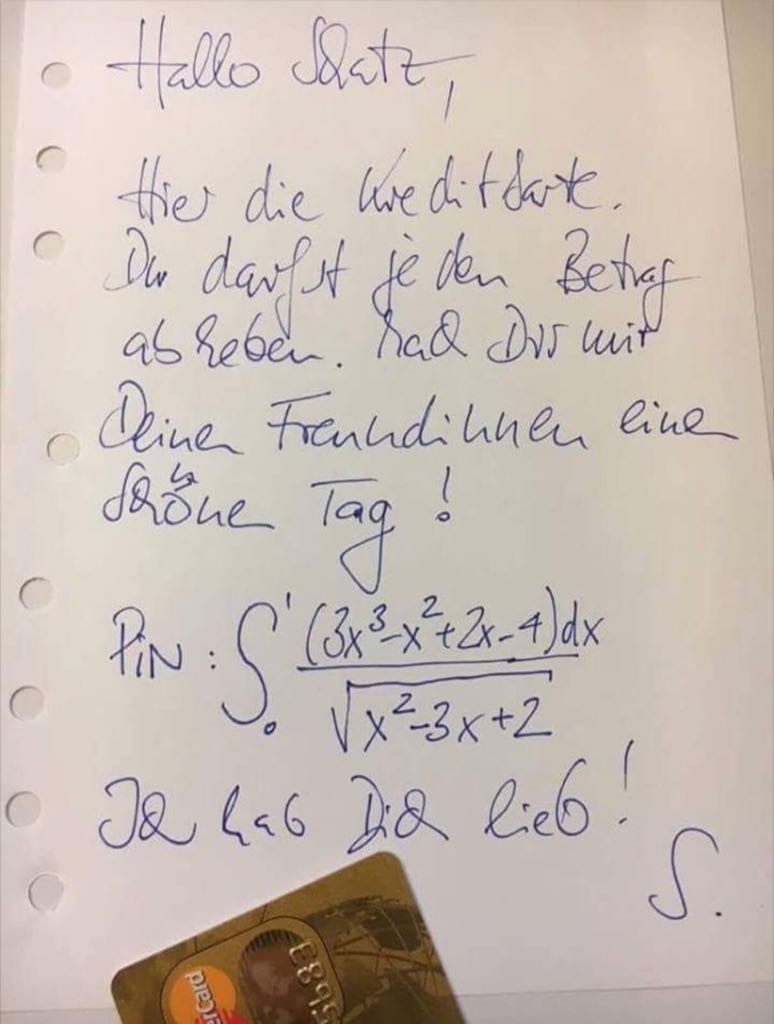 Hallo Schatz,
Hier die Kreditkarte.
Du darfst jeden Betrag
abheben. Mach Dir mit
Deinen Freundinnen einen
schönen Tag!
PIN: ∫₀¹ (3x³-x²+2x-4)dx / √(x²-3x+2)
Ich hab Dich lieb!
S.